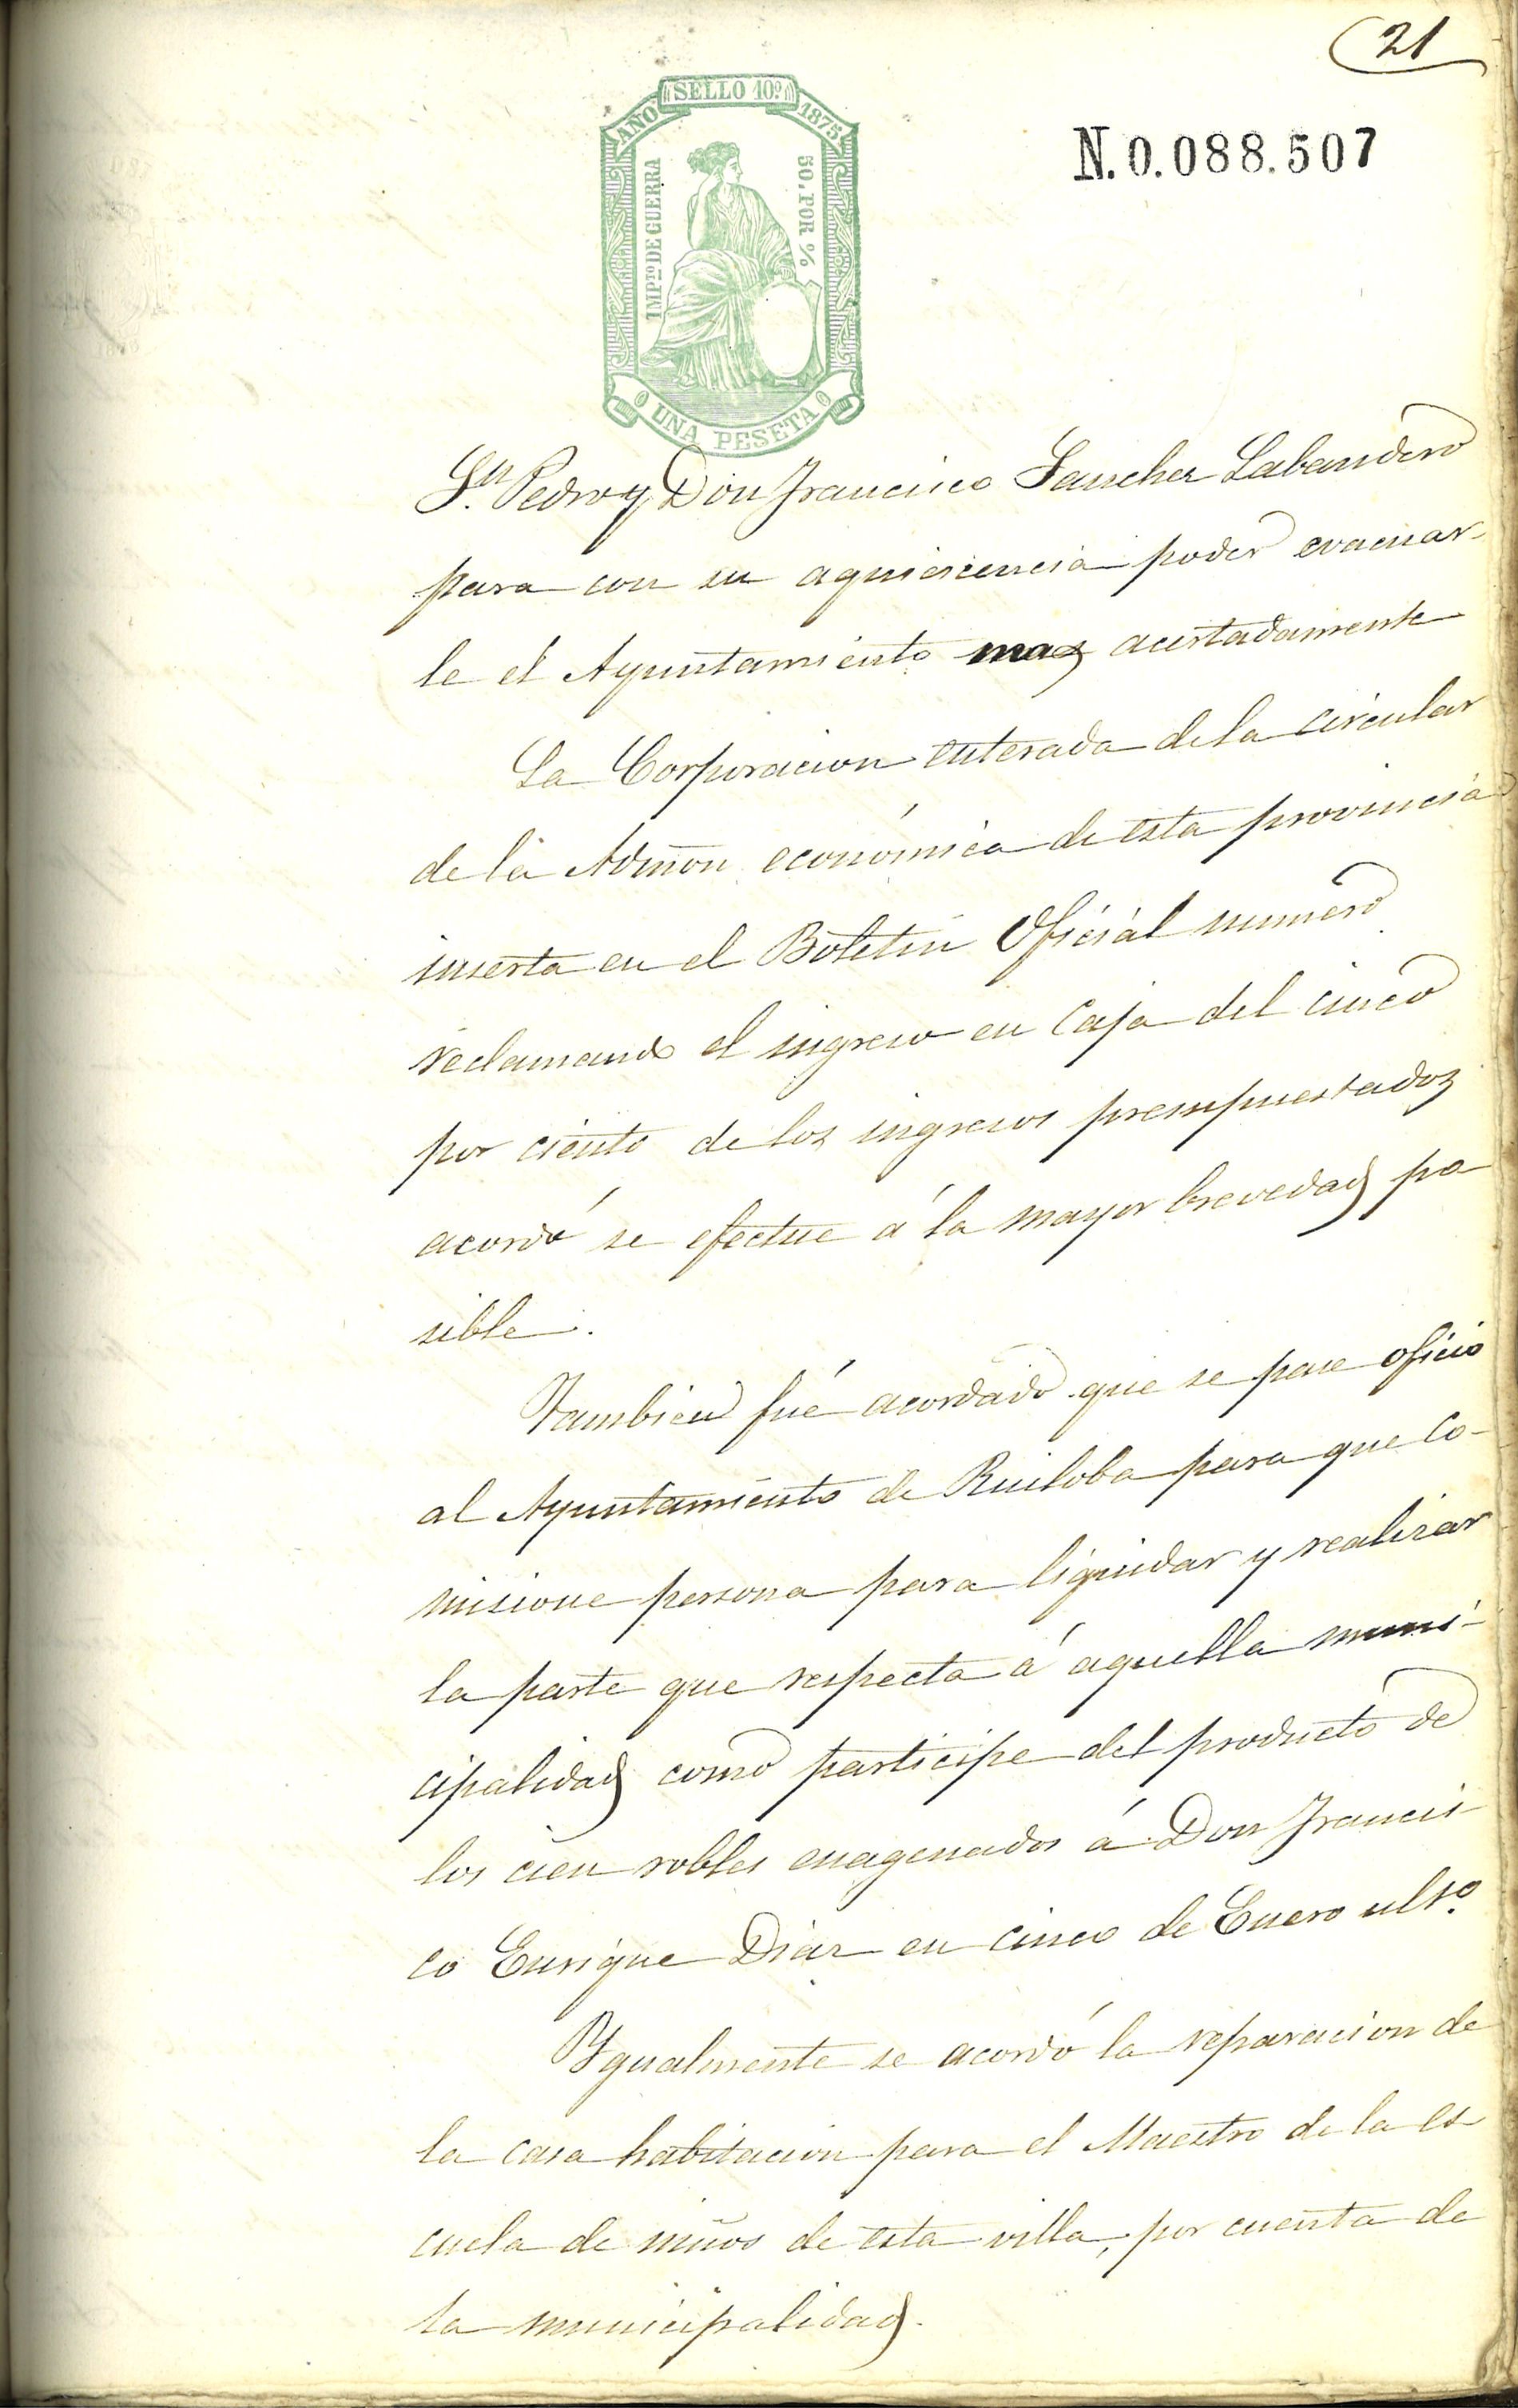 21
SELLO 10º
AÑO 1875
N.0.088.507
IMPTO DE GUERRA
50. POR %
UNA PESETA
Sn. Pedro y Don Francisco Sanchez Labandero
para con su aquiesciencia poder evacuar-
le el Ayuntamiento mas acertadamente
La Corporacion enterada de la circular
de la Admon económica de esta provincia
inserta en el Boletin Oficial numero
reclamando el ingreso en Caja del cinco
por ciento de los ingresos presupuestados
acordó se efectue á la mayor brevedad po
sible.
Tambien fué acordado que se pase oficio
al Ayuntamiento de Ruiloba para que Co-
misione persona para liquidar y realizar
la parte que respecta á aquella muni-
cipalidad como participe del producto de
los cien robles enagenados á Don Francis
co Enrique Diaz en cinco de Enero ulto.
Ygualmente se acordó la reparacion de
la casa habitacion para el Maestro de la es
cuela de niños de esta villa, por cuenta de
la municipalidad.